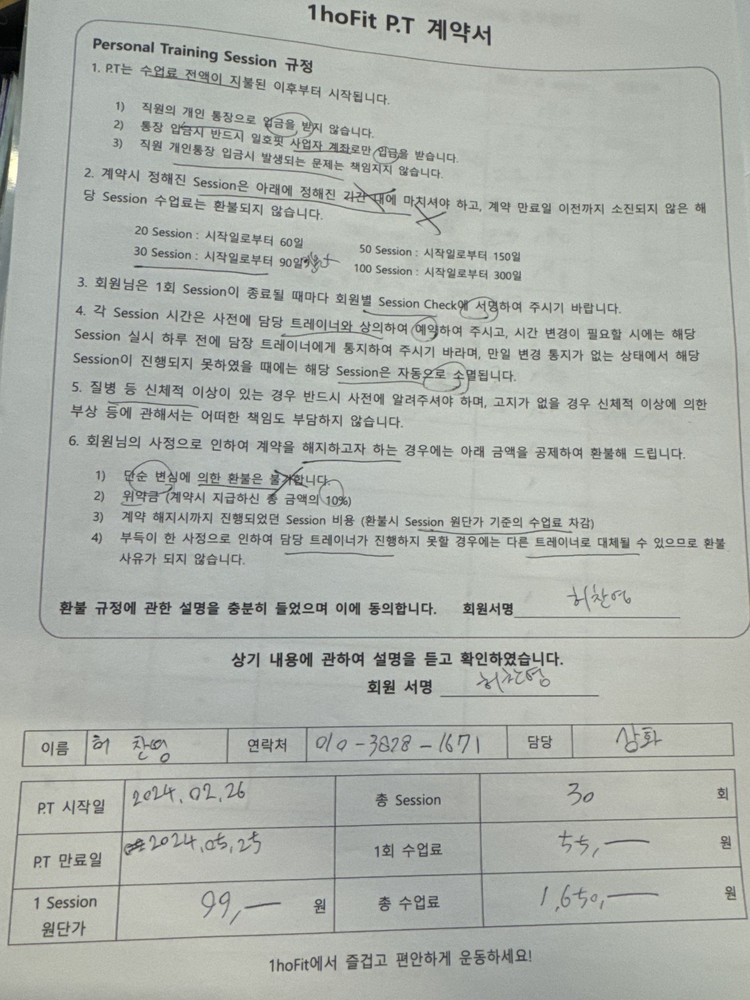 1hoFit P.T 계약서
Personal Training Session 규정
1. P.T는 수업료 전액이 지불된 이후부터 시작됩니다.
1) 직원의 개인 통장으로 입금을 받지 않습니다.
2) 통장 입금시 반드시 일호핏 사업자 계좌로만 입금을 받습니다.
3) 직원 개인통장 입금시 발생되는 문제는 책임지지 않습니다.
2. 계약시 정해진 Session은 아래에 정해진 기간 내에 마치셔야 하고, 계약 만료일 이전까지 소진되지 않은 해
당 Session 수업료는 환불되지 않습니다.
20 Session : 시작일로부터 60일 50 Session : 시작일로부터 150일
30 Session : 시작일로부터 90일 100 Session : 시작일로부터 300일
3. 회원님은 1회 Session이 종료될 때마다 회원별 Session Check에 서명하여 주시기 바랍니다.
4. 각 Session 시간은 사전에 담당 트레이너와 상의하여 예약하여 주시고, 시간 변경이 필요할 시에는 해당
Session 실시 하루 전에 담장 트레이너에게 통지하여 주시기 바라며, 만일 변경 통지가 없는 상태에서 해당
Session이 진행되지 못하였을 때에는 해당 Session은 자동으로 소멸됩니다.
5. 질병 등 신체적 이상이 있는 경우 반드시 사전에 알려주셔야 하며, 고지가 없을 경우 신체적 이상에 의한
부상 등에 관해서는 어떠한 책임도 부담하지 않습니다.
6. 회원님의 사정으로 인하여 계약을 해지하고자 하는 경우에는 아래 금액을 공제하여 환불해 드립니다.
1) 단순 변심에 의한 환불은 불가합니다.
2) 위약금 (계약시 지급하신 총 금액의 10%)
3) 계약 해지시까지 진행되었던 Session 비용 (환불시 Session 원단가 기준의 수업료 차감)
4) 부득이 한 사정으로 인하여 담당 트레이너가 진행하지 못할 경우에는 다른 트레이너로 대체될 수 있으므로 환불
사유가 되지 않습니다.
환불 규정에 관한 설명을 충분히 들었으며 이에 동의합니다. 회원서명 허찬영
상기 내용에 관하여 설명을 듣고 확인하였습니다.
회원 서명 허찬영
이름 허 찬영 연락처 010-3828-1671 담당 상화
P.T 시작일 2024.02.26 총 Session 30 회
P.T 만료일 2024.05.25 1회 수업료 55,— 원
1 Session
원단가 99,— 원 총 수업료 1,650,— 원
1hoFit에서 즐겁고 편안하게 운동하세요!